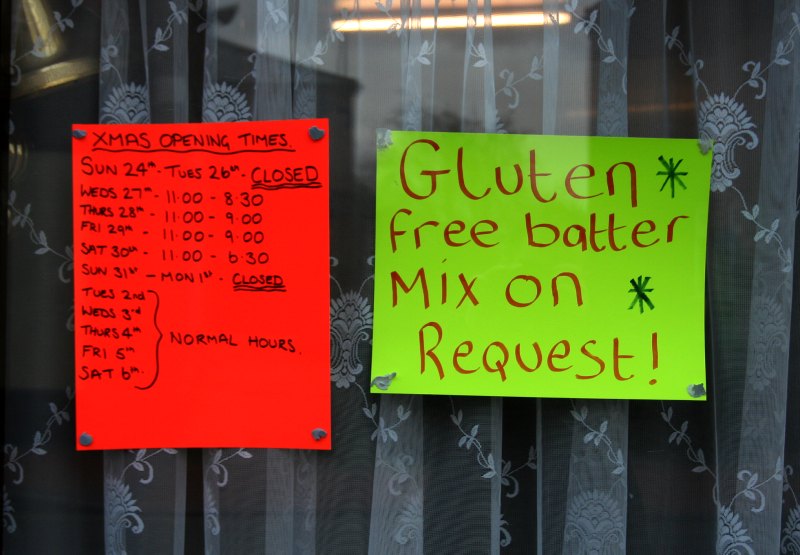 XMAS OPENING TIMES.
SUN 24th - TUES 26th - CLOSED
WEDS 27th - 11.00 - 8.30
THURS 28th - 11.00 - 9.00
FRI 29th - 11.00 - 9.00
SAT 30th - 11.00 - 6.30
SUN 31st - MON 1st - CLOSED
TUES 2nd
WEDS 3rd
THURS 4th
FRI 5th
SAT 6th.
NORMAL HOURS.
Gluten *
free batter
Mix on *
Request!